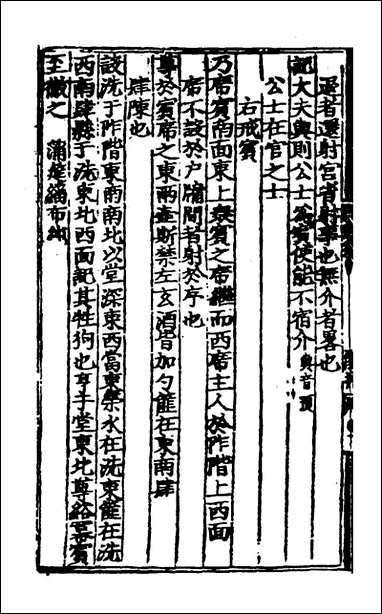 退者還射宮省射事也無介者畧也
記大夫與則公士為賓使能不宿介與音預
公士在官之士
右戒賓
乃席賓南面東上衆賓之席繼而西席主人於阼階上西面
席不設於户牖間者射於序也
尊於賓席之東兩壺斯禁左玄酒皆加勺篚在東南肆
肆陳也
設洗于阼階東南南北以堂深東西當東榮水在洗東篚在洗
西南肆縣于洗東北西面記其牲狗也亨于堂東北尊綌冪賓
至徹之 蒲筵緇布純